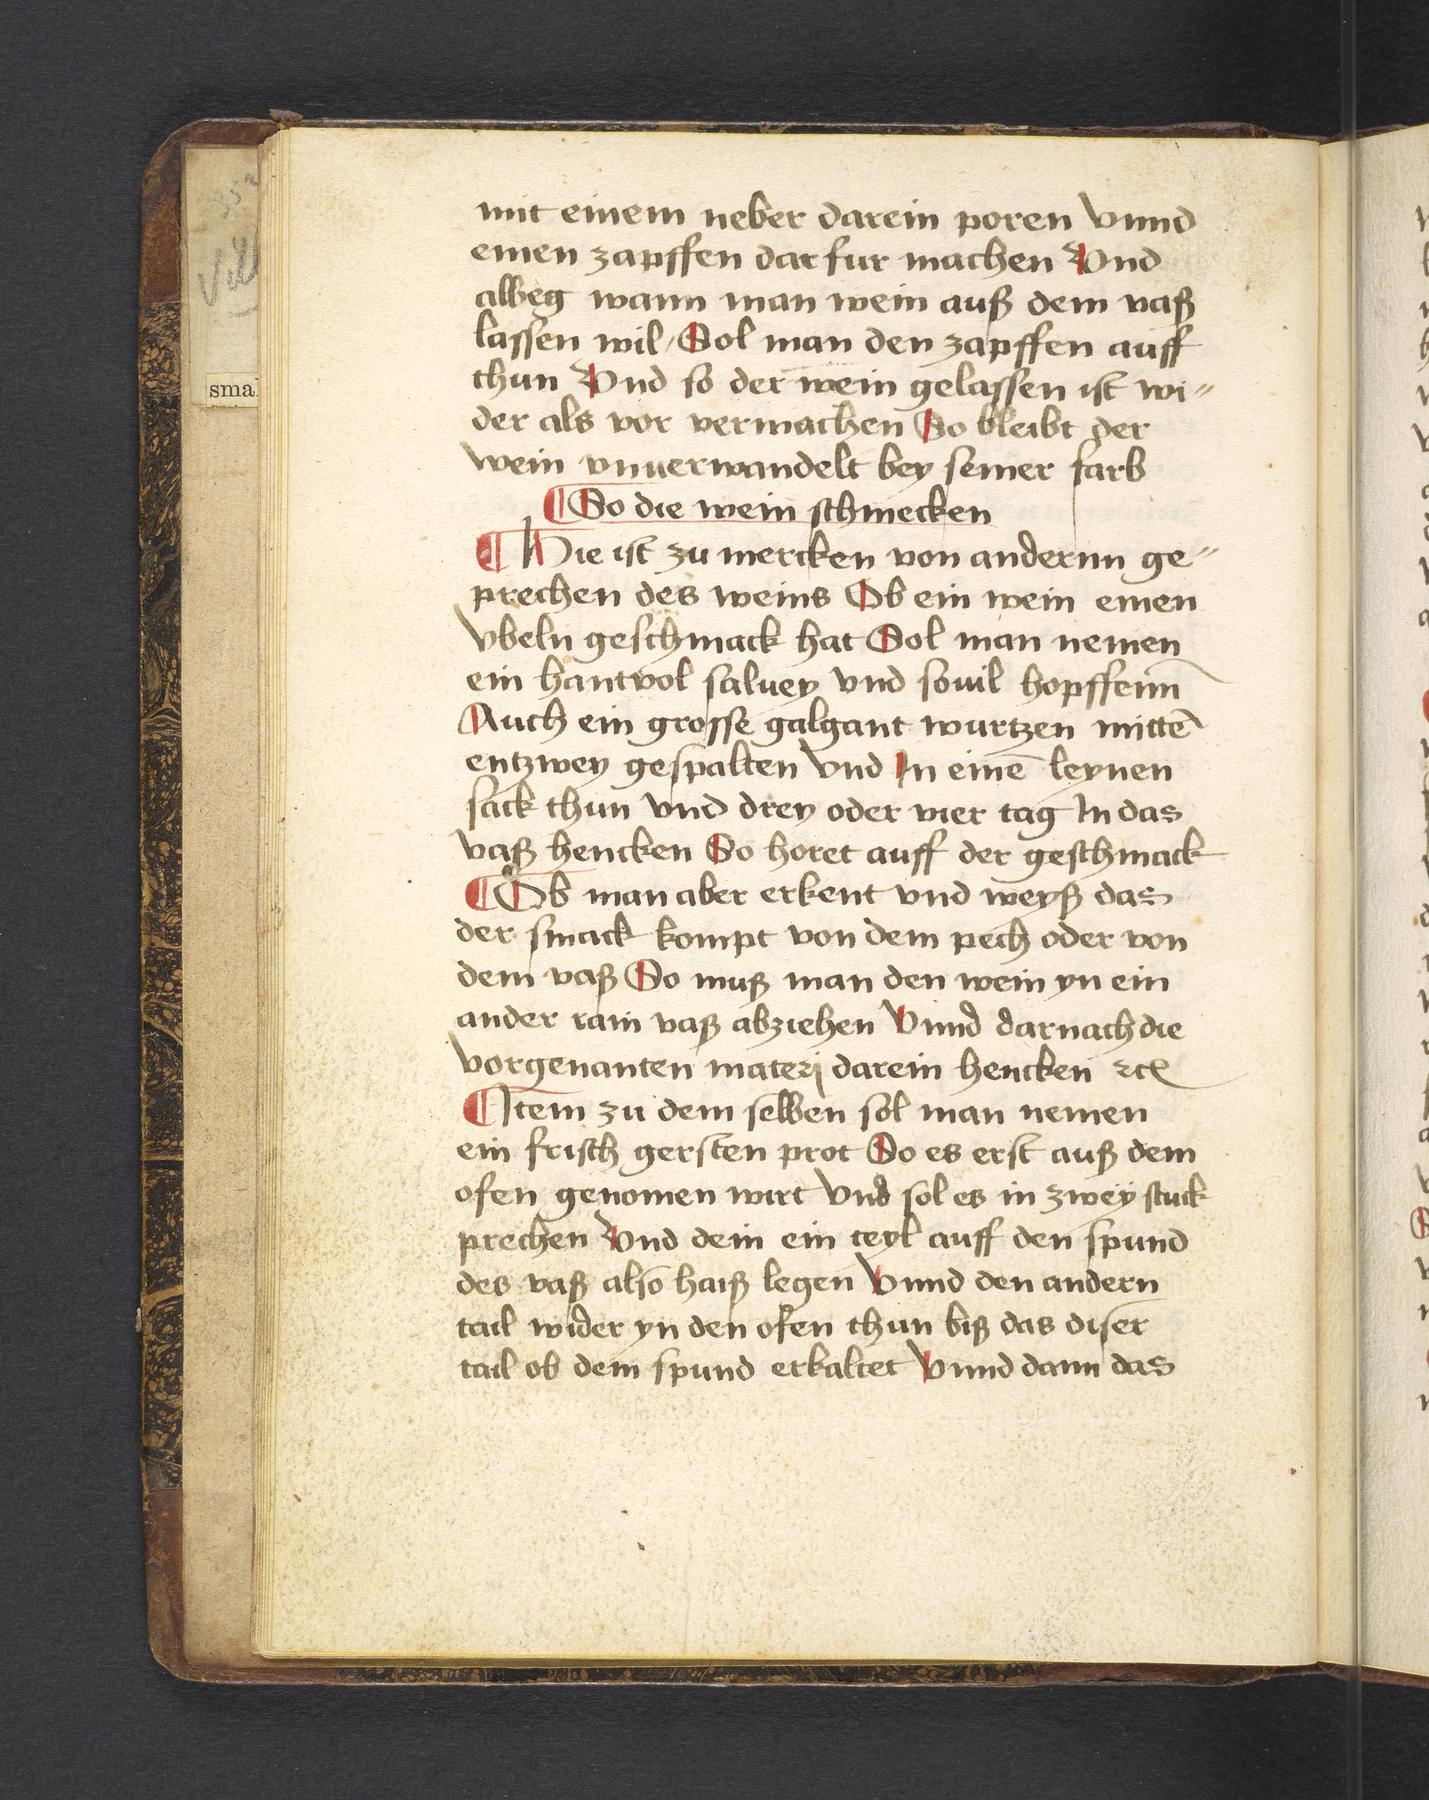 mit einem neber darein poren Vnnd
einen zapffen dar fur machen Vnd
alweg wann man wein auß dem vaß
lassen wil / Sol man den zapffen auff
thun Vnd so der wein gelassen ist wi〃
der als vor vermachen So bleibt der
wein vnuerwandelt bey seiner farb
¶ So die wein schmecken
¶ Hie ist zu mercken von andernn ge〃
prechen des weins Ob ein wein einen
vbeln geschmack hat Sol man nemen
ein hantvol saluey vnd souil hopffenn
Auch ein grosse galgant wurtzen mittē
entzwey gespalten Vnd In einē leynen
sack thun vnd drey oder vier tag In das
vaß hencken So horet auff der geschmack
¶ Ob man aber erkent vnd weyß das
der smack kompt von dem pech oder von
dem vaß So muß man den wein yn ein
ander rain vaß abziehen Vnnd darnach die
vorgenanten materj darein hencken ⁊cꝭ
¶ Item zu dem selben sol man nemen
ein frisch gersten prot So es erst auß dem
ofen genomen wirt Vnd sol es in zwey stuck
prechen Vnd dein ein teyl auff den spund
des vaß also haiß legen Vnnd den andern
tail wider yn den ofen thun biß das diser
tail ob dem spund erkaltet Vnnd dann das
sma